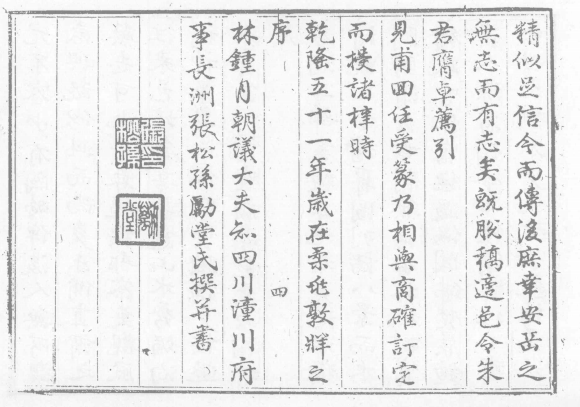 精似足信今而傳後庶幸安岳之
無志而有志矣既脫稿適邑令朱
君膺卓薦引
見甫囬任受篆乃相與商確訂定
而授諸梓時
乾隆五十一年歲在柔兆敦牂之
序
四
林鍾月朝議大夫知四川潼川府
事長洲張松孫勵堂氏撰并書
張印松孫
勵堂